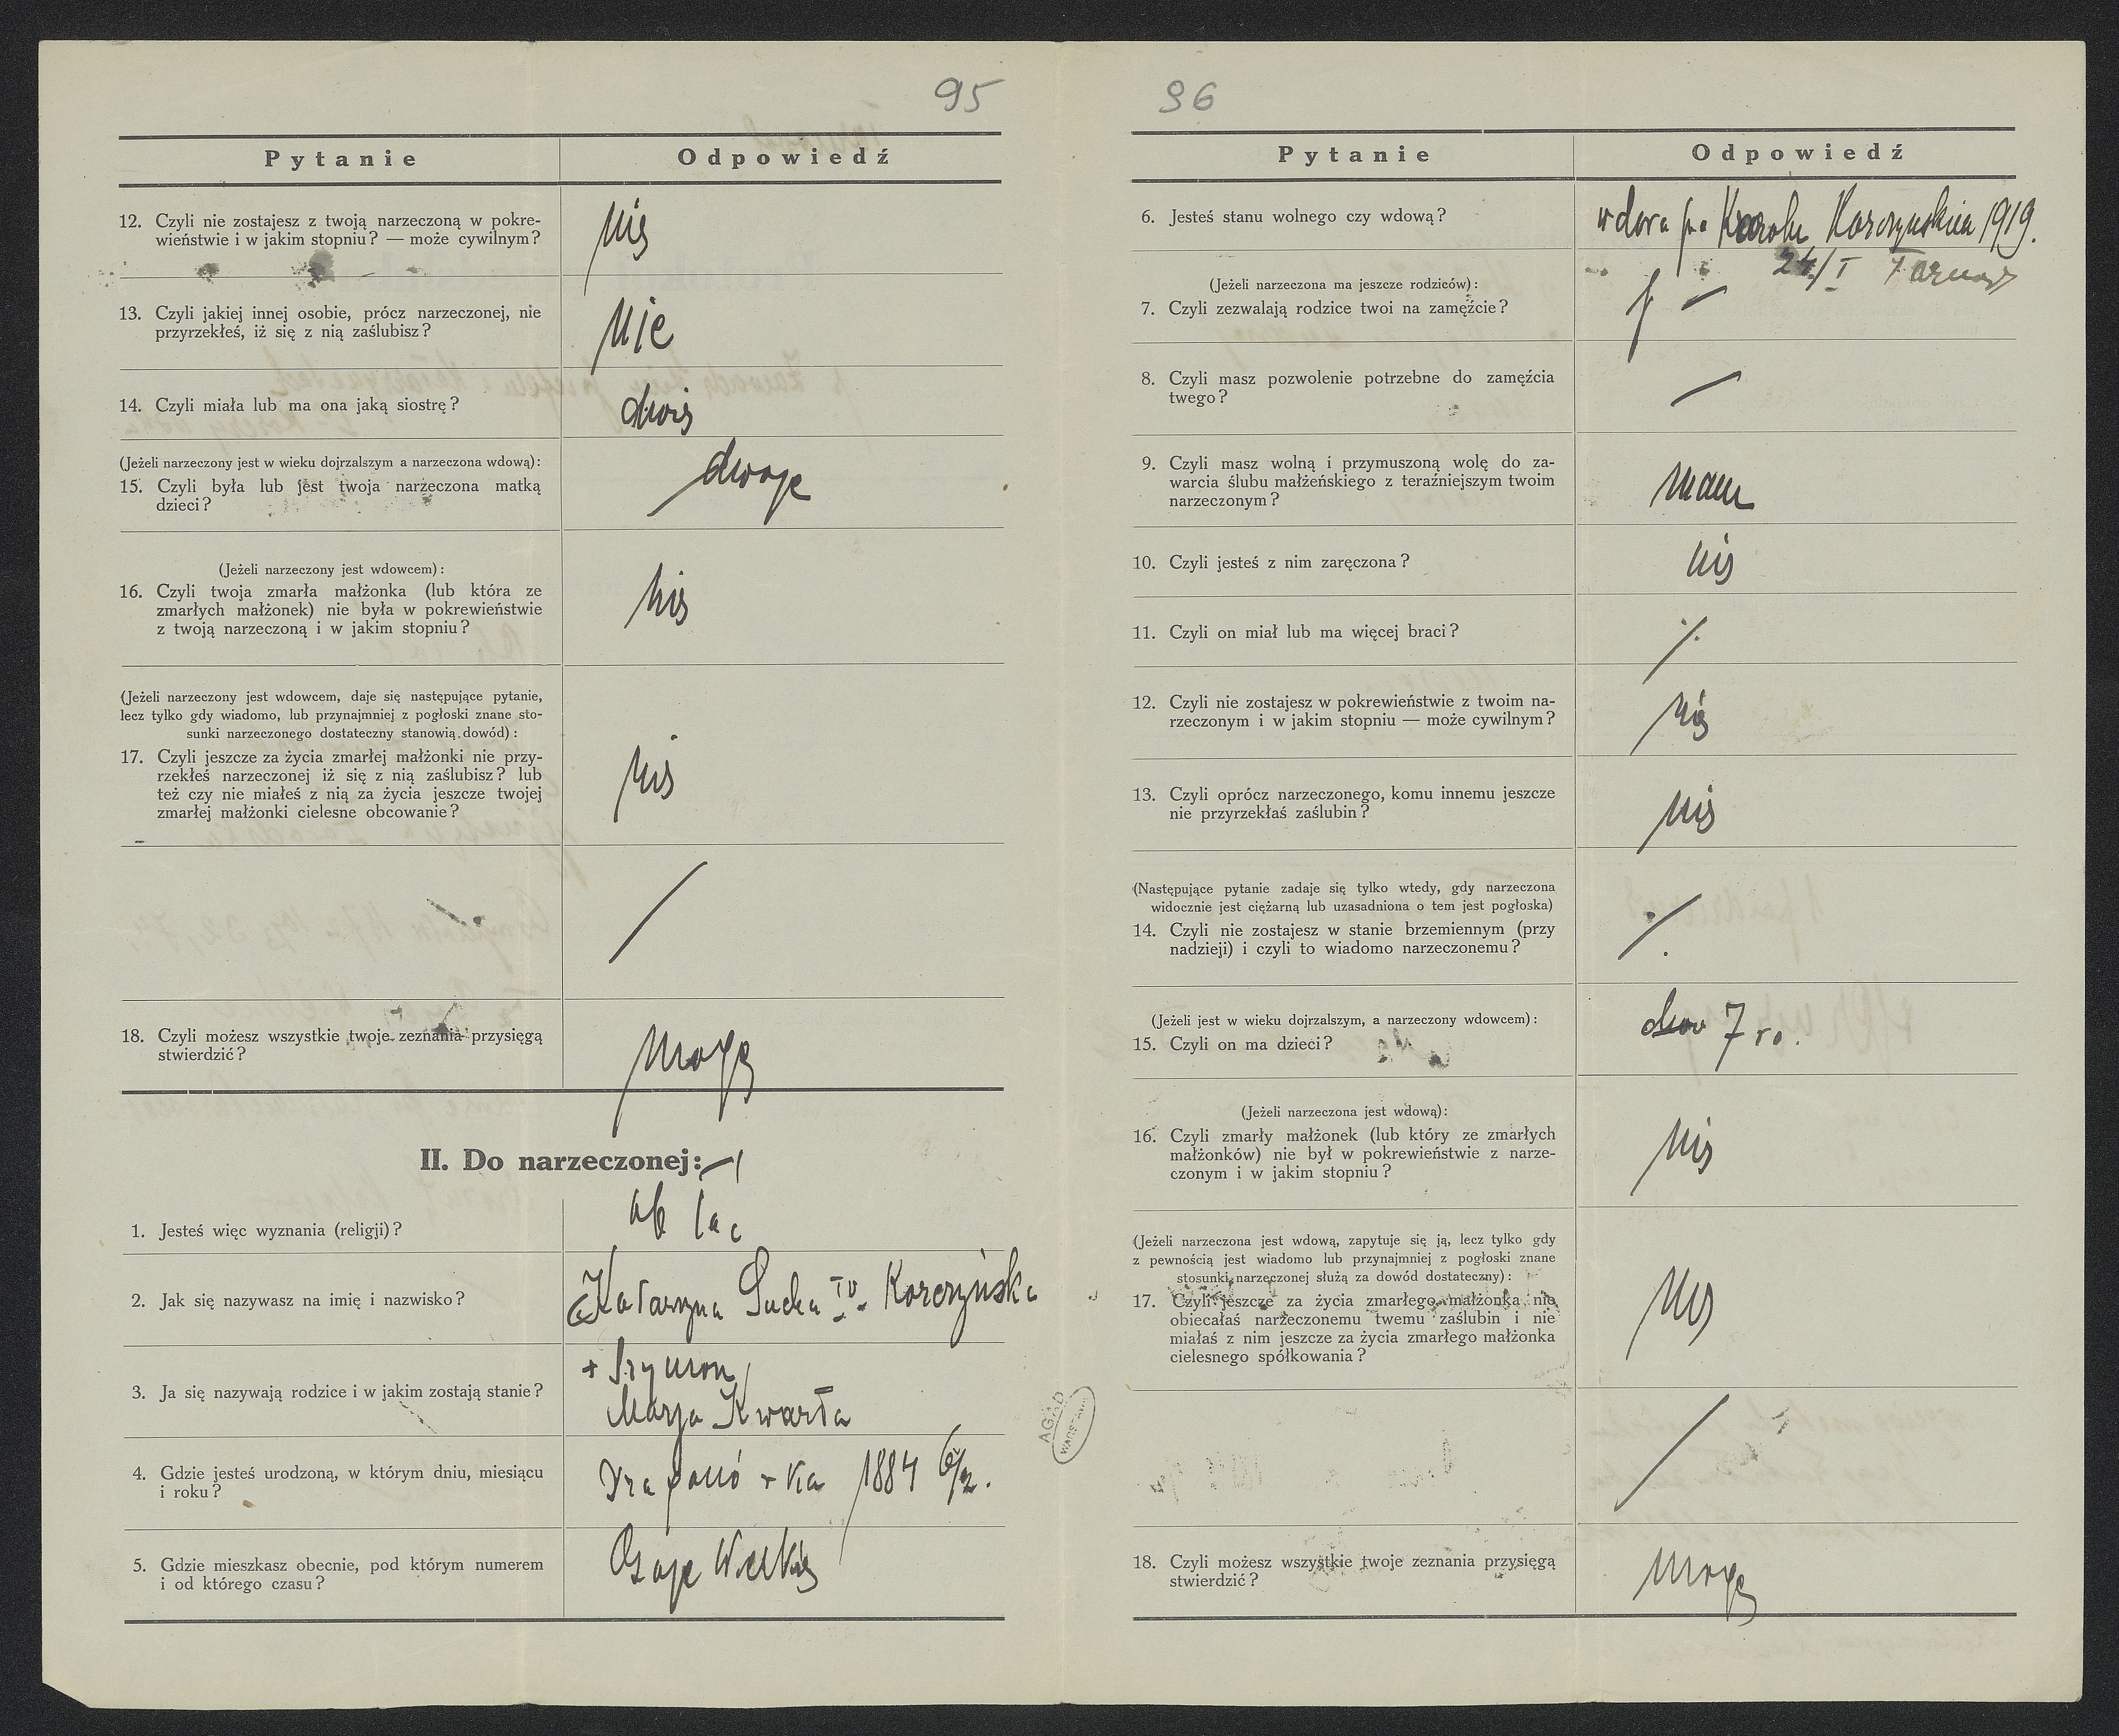 95
Pytanie
Odpowiedź
12. Czyli nie zostajesz z twoją narzeczoną w pokre-
wieństwie i w jakim stopniu? — może cywilnym?
nie
13. Czyli jakiej innej osobie, prócz narzeczonej, nie
przyrzekłeś, iż się z nią zaślubisz?
nie
14. Czyli miała lub ma ona jaką siostrę?
(Jeżeli narzeczony jest w wieku dojrzalszym a narzeczona wdową):
15. Czyli była lub jest twoja narzeczona matką
dzieci?
dwoje
(Jeżeli narzeczony jest wdowcem):
16. Czyli twoja zmarła małżonka (lub która ze
zmarłych małżonek) nie była w pokrewieństwie
z twoją narzeczoną i w jakim stopniu?
nie
(Jeżeli narzeczony jest wdowcem, daje się następujące pytanie,
lecz tylko gdy wiadomo, lub przynajmniej z pogłoski znane sto-
sunki narzeczonego dostateczny stanowią dowód):
17. Czyli jeszcze za życia zmarłej małżonki nie przy-
rzekłeś narzeczonej iż się z nią zaślubisz? lub
też czy nie miałeś z nią za życia jeszcze twojej
zmarłej małżonki cielesne obcowanie?
nie
18. Czyli możesz wszystkie twoje zeznania przysięgą
stwierdzić?
mogę
II. Do narzeczonej:
1. Jesteś więc wyznania (religji)?
ob łac
2. Jak się nazywasz na imię i nazwisko?
Katarzyna Sucha Iv. Korczyńska
3. Ja się nazywają rodzice i w jakim zostają stanie?
+ Szymon
Marja Kwarta
4. Gdzie jesteś urodzoną, w którym dniu, miesiącu
i roku?
1884 6/2.
5. Gdzie mieszkasz obecnie, pod którym numerem
i od którego czasu?
Wielkie
AGAD
WARSZAWA
96
Pytanie
Odpowiedź
6. Jesteś stanu wolnego czy wdową?
wdowa po Karolu Korczyńskim 1919.
24/I
(Jeżeli narzeczona ma jeszcze rodziców):
7. Czyli zezwalają rodzice twoi na zamęźcie?
—
8. Czyli masz pozwolenie potrzebne do zamęźcia
twego?
—
9. Czyli masz wolną i przymuszoną wolę do za-
warcia ślubu małżeńskiego z teraźniejszym twoim
narzeczonym?
mam
10. Czyli jesteś z nim zaręczona?
nie
11. Czyli on miał lub ma więcej braci?
·/.
12. Czyli nie zostajesz w pokrewieństwie z twoim na-
rzeczonym i w jakim stopniu — może cywilnym?
nie
13. Czyli oprócz narzeczonego, komu innemu jeszcze
nie przyrzekłaś zaślubin?
nie
(Następujące pytanie zadaje się tylko wtedy, gdy narzeczona
widocznie jest ciężarną lub uzasadniona o tem jest pogłoska)
14. Czyli nie zostajesz w stanie brzemiennym (przy
nadzieji) i czyli to wiadomo narzeczonemu?
·/.
(Jeżeli jest w wieku dojrzalszym, a narzeczony wdowcem):
15. Czyli on ma dzieci?
7 ro.
(Jeżeli narzeczona jest wdową):
16. Czyli zmarły małżonek (lub który ze zmarłych
małżonków) nie był w pokrewieństwie z narze-
czonym i w jakim stopniu?
nie
(Jeżeli narzeczona jest wdową, zapytuje się ją, lecz tylko gdy
z pewnością jest wiadomo lub przynajmniej z pogłoski znane
stosunki narzęczonej służą za dowód dostateczny):
17. Czyli jeszcze za życia zmarłego małżonka nie
obiecałaś narzeczonemu twemu zaślubin i nie
miałaś z nim jeszcze za życia zmarłego małżonka
cielesnego spółkowania?
nie
18. Czyli możesz wszystkie twoje zeznania przysięgą
stwierdzić?
mogę